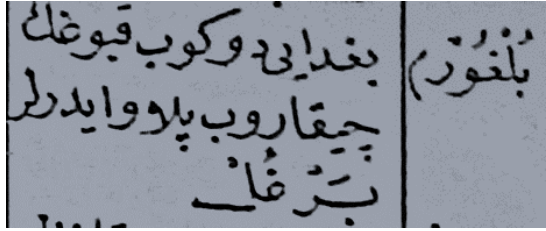 بُلْغُوْرْ م بغدايی دوكوب قبوغڭ
چيقاروب پلاو ايدرلر
بَرْغُلْ